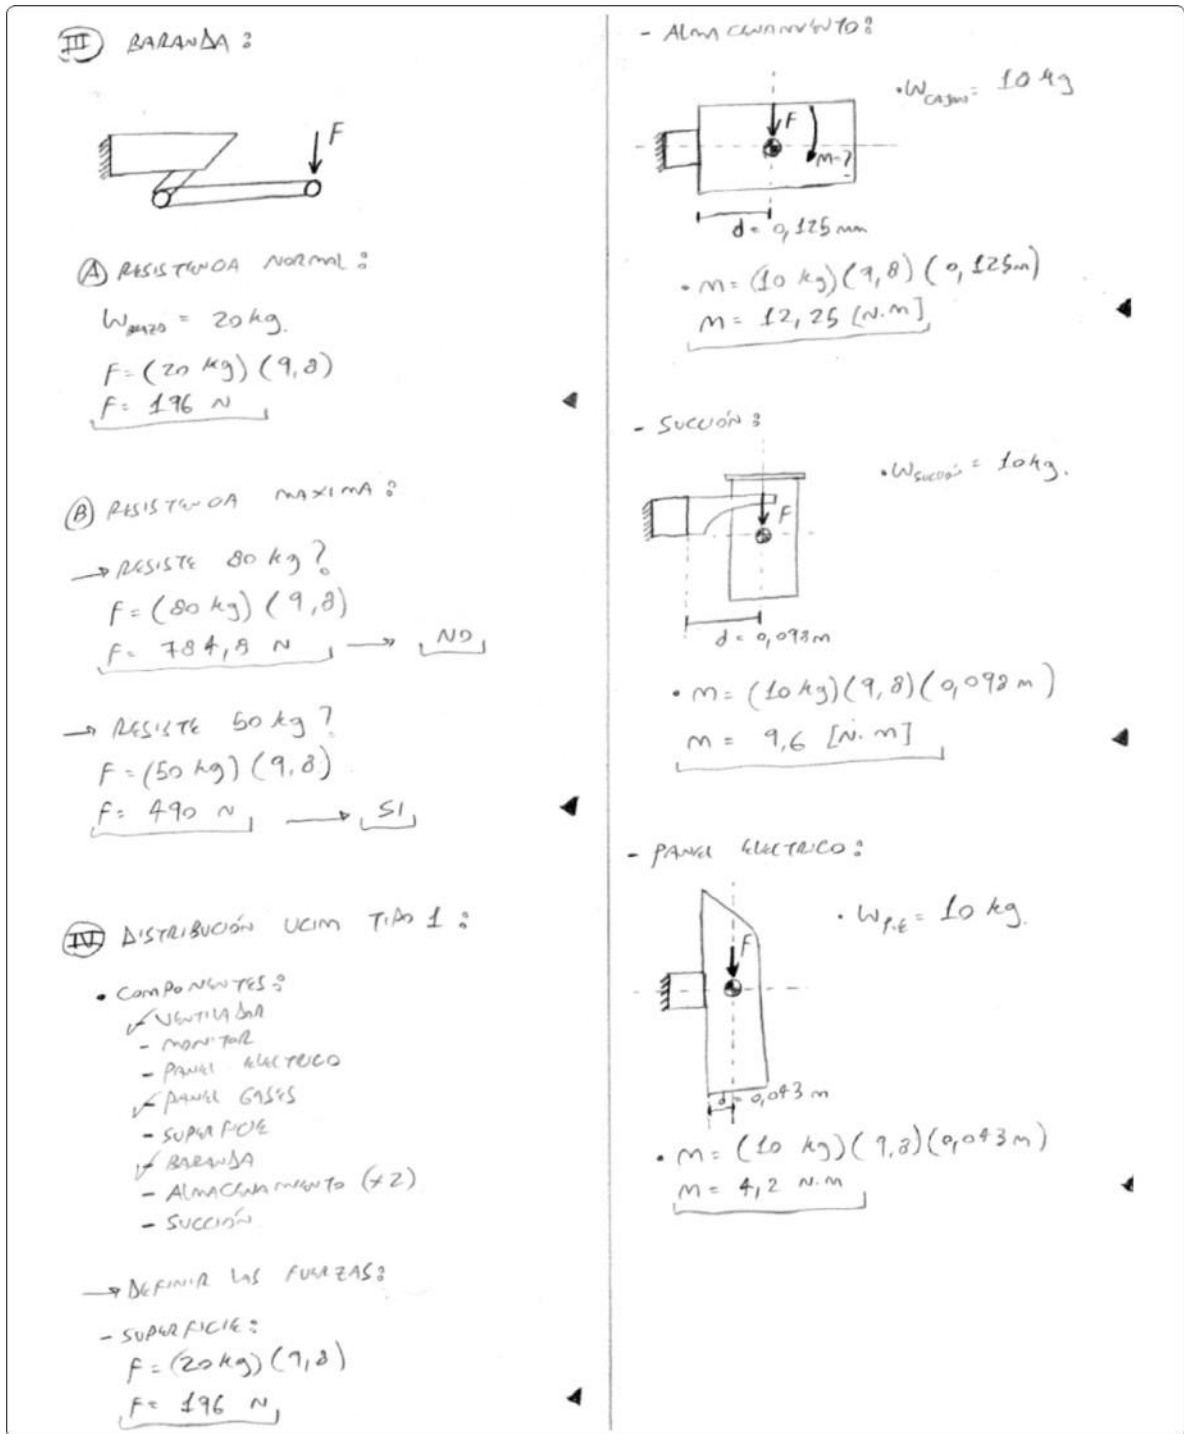 III BARANDA:
F
A RESISTENCIA NORMAL:
W BRAZO = 20 kg.
F= (20 kg) (9,8)
F= 196 N
B RESISTENCIA MAXIMA:
→ RESISTE 80 kg?
F= (80 kg) (9,8)
F= 784,8 N → NO
→ RESISTE 50 kg?
F= (50 kg) (9,8)
F= 490 N → SI
IV DISTRIBUCIÓN UCIM TIPO 1:
• COMPONENTES:
✓ VENTILADOR
- MONITOR
- PANEL ELECTRICO
✓ PANEL GASES
- SUPERFICIE
✓ BARANDA
- ALMACENAMIENTO (x2)
- SUCCIÓN
→ DEFINIR LAS FUERZAS:
- SUPERFICIE:
F= (20kg) (9,8)
F= 196 N
- ALMACENAMIENTO:
• W CAJON = 10 kg
F
M=?
d= 0,125 mm
• M= (10 kg) (9,8) (0,125m)
M= 12,25 [N.m]
- SUCCIÓN:
• W SUCCIÓN = 10kg.
F
d= 0,098m
• M= (10 kg) (9,8) (0,098 m)
M= 9,6 [N.m]
- PANEL ELECTRICO:
• W P.E = 10 kg.
F
d= 0,043 m
• M= (10 kg) (9,8) (0,043m)
M= 4,2 N.m